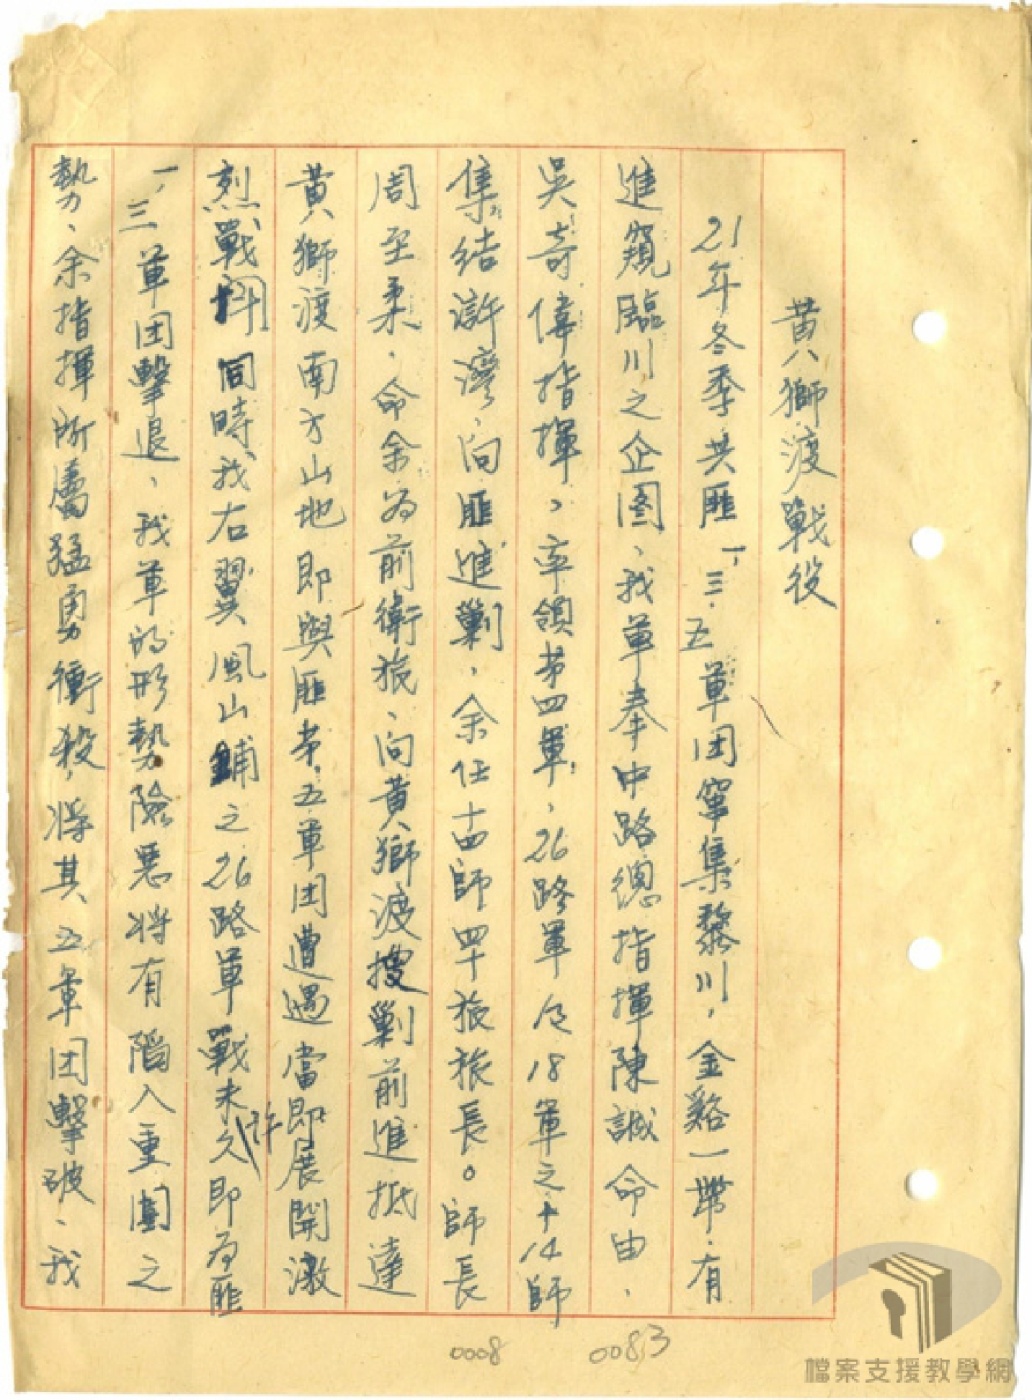 黃獅渡戰役
21年冬季共匪一、三.五軍团窜集黎川,金谿一帶.有
進窺臨川之企图、我軍奉中路總指揮陳誠命由、
吳奇偉指揮、率領第四軍、26路軍及18軍之十14師
集結滸灣、向匪進剿,余任十四師四十旅旅長。師長
周至柔,命余为前衛旅、向黃獅渡搜剿前進抵達
黃獅渡南方山地即與匪第五軍团遭遇當即展開激
烈戰 同時我右翼風山鋪之26路軍戰未許久即为匪
一,三軍团擊退、我軍的形勢險惡将有陷入重圍之
勢、余指揮所屬猛勇衝殺,将其五軍团擊破、我
0008
0083
檔案支援教學網